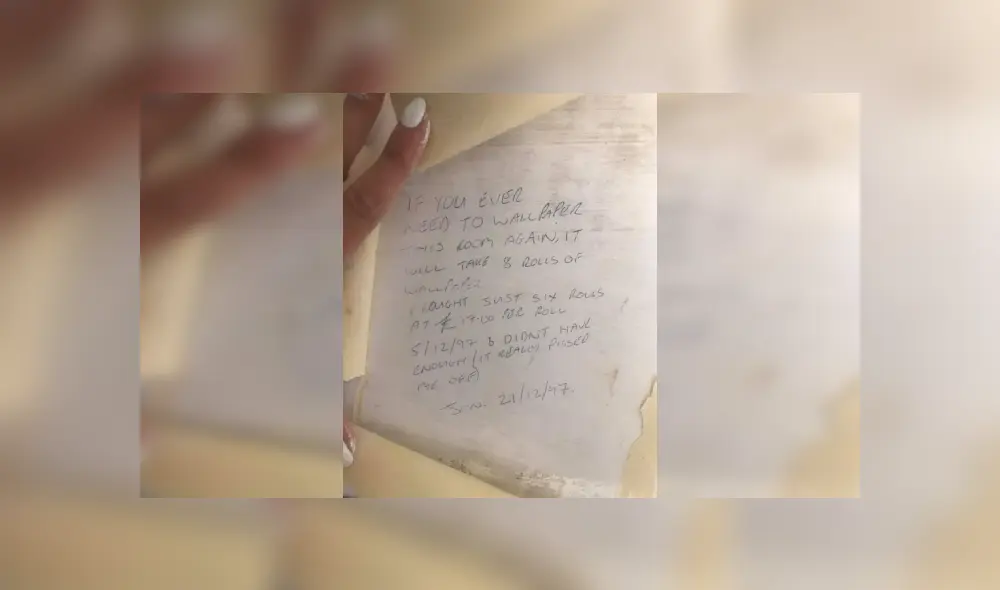 IF YOU EVER
NEED TO WALLPAPER
THIS ROOM AGAIN, IT
WILL TAKE 8 ROLLS OF
WALLPAPER
I BOUGHT JUST SIX ROLLS
AT £ 17.00 PER ROLL
5/12/97 & DIDNT HAVE
ENOUGH (IT REALLY PISSED
ME OFF)
21/12/97.